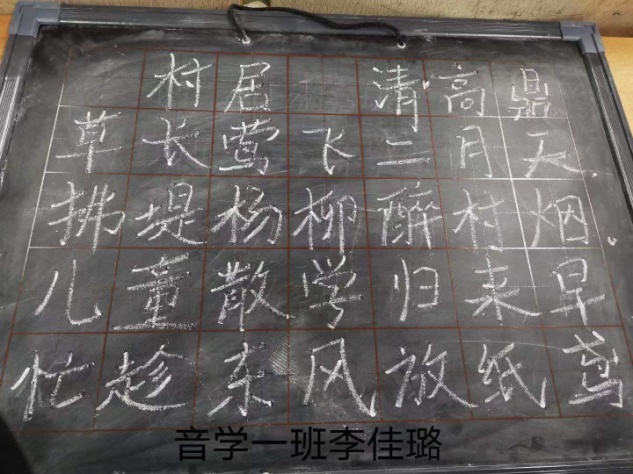 村居 清 高鼎
草长莺飞二月天
拂堤杨柳醉村烟
儿童散学归来早
忙趁东风放纸鸢
音学一班李佳璐